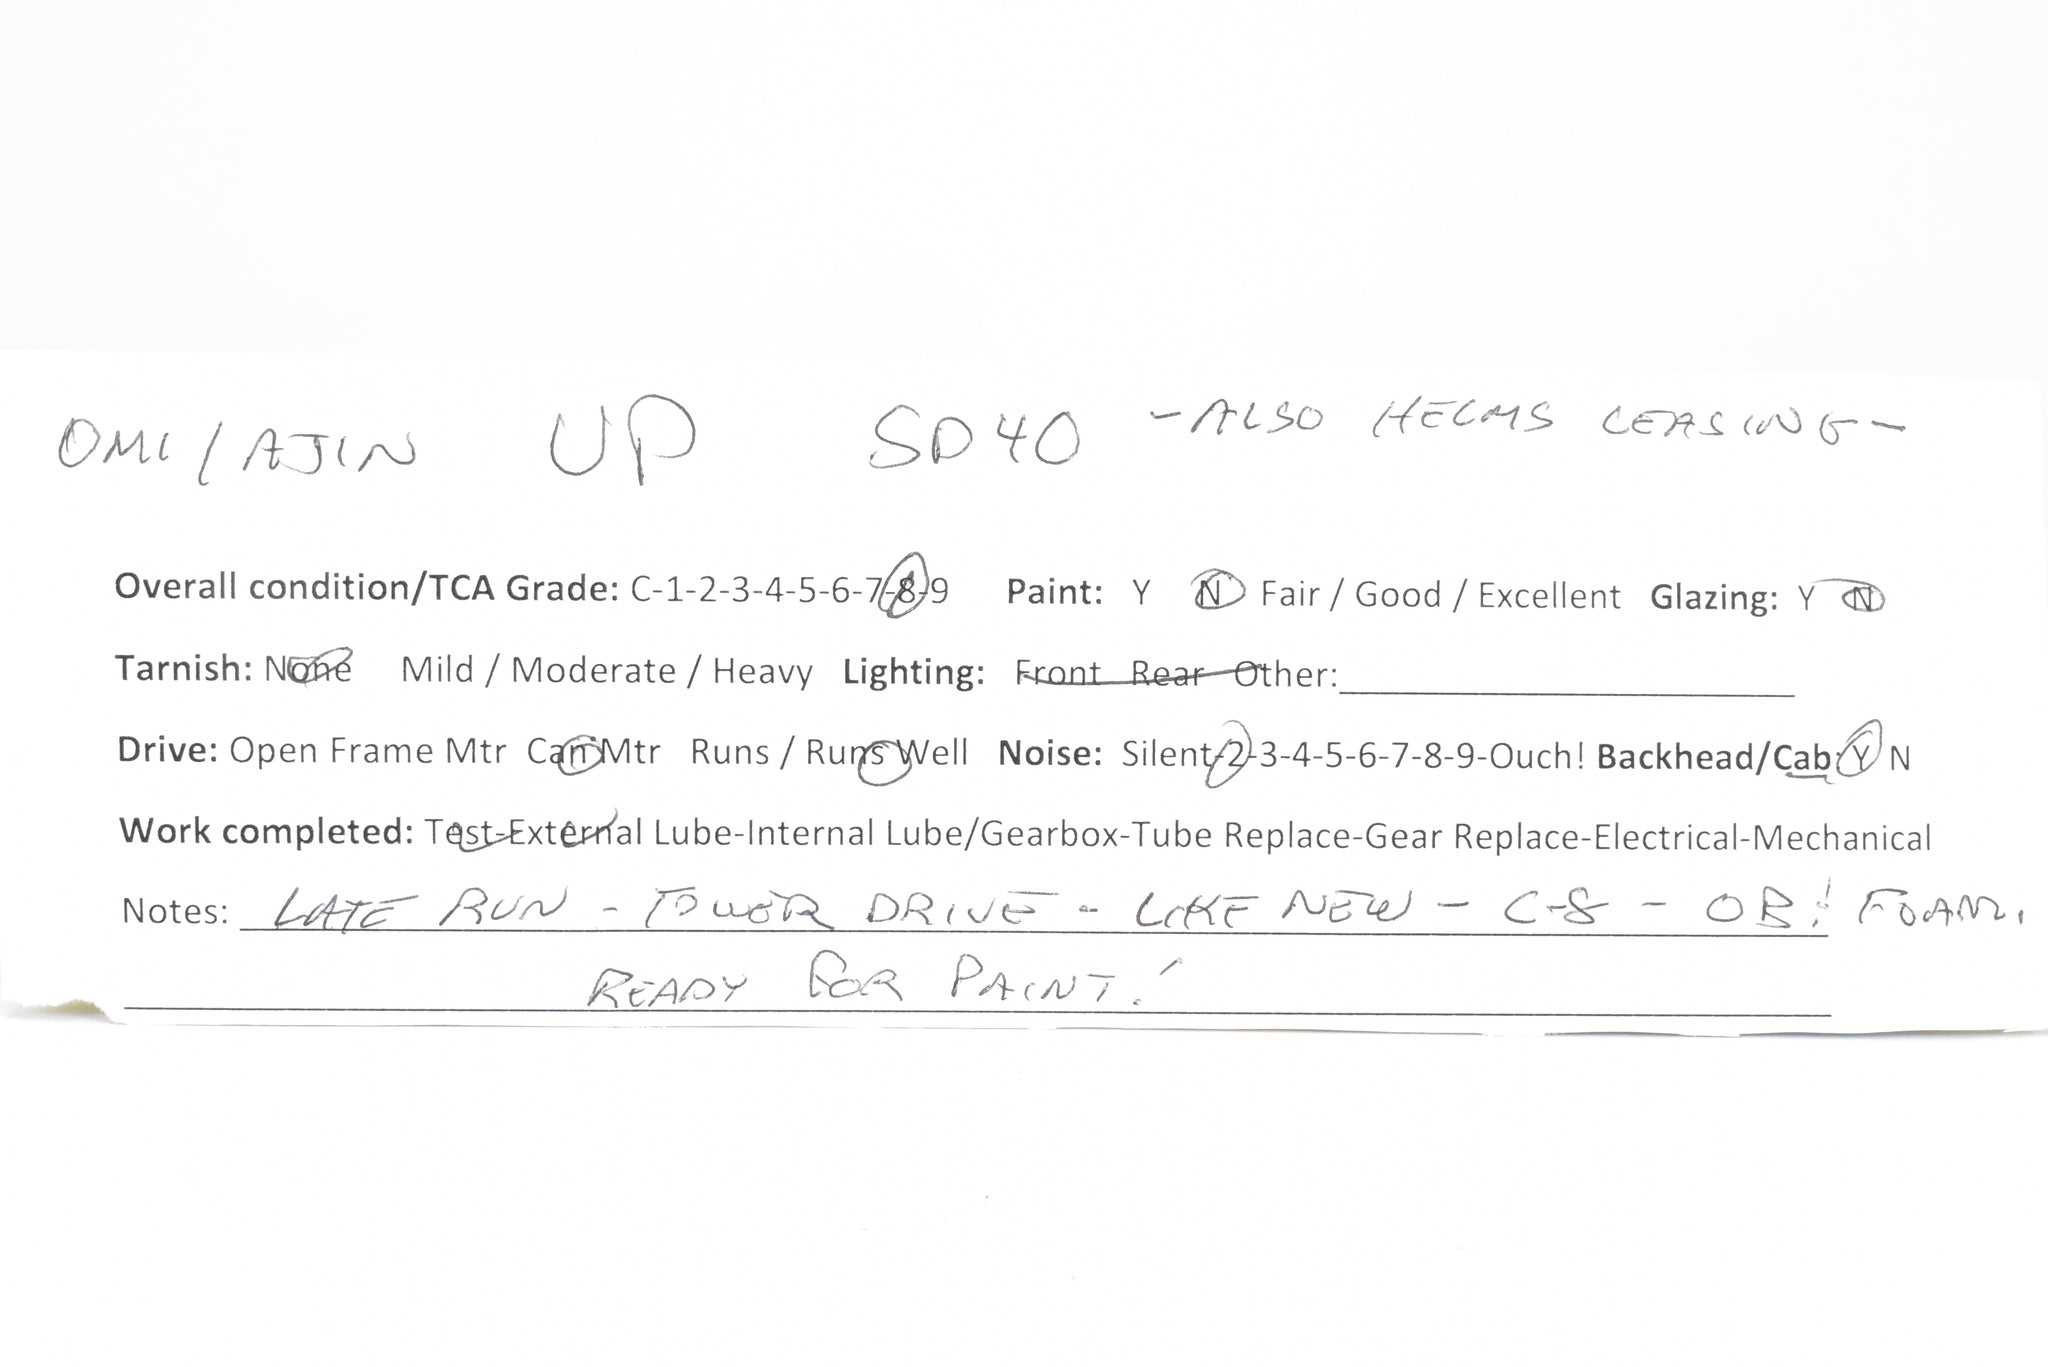 OMI/AJIN UP SD40 -ALSO HELMS LEASING-
Overall condition/TCA Grade: C-1-2-3-4-5-6-7-8-9 Paint: Y N Fair / Good / Excellent Glazing: Y N
Tarnish: None Mild / Moderate / Heavy Lighting: Front Rear Other:
Drive: Open Frame Mtr Can Mtr Runs / Runs Well Noise: Silent-2-3-4-5-6-7-8-9-Ouch! Backhead/Cab: Y N
Work completed: Test-External Lube-Internal Lube/Gearbox-Tube Replace-Gear Replace-Electrical-Mechanical
Notes: LATE RUN - TOWER DRIVE - LIKE NEW - C-8 - OB! FOAM.
READY FOR PAINT!